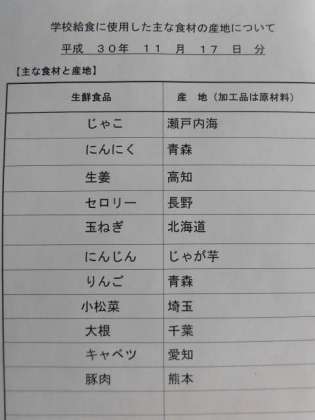 学校給食に使用した主な食材の産地について
平成 30年 11 月 17 日 分
【主な食材と産地】
生鮮食品 産 地（加工品は原材料）
じゃこ 瀬戸内海
にんにく 青森
生姜 高知
セロリー 長野
玉ねぎ 北海道
にんじん じゃが芋
りんご 青森
小松菜 埼玉
大根 千葉
キャベツ 愛知
豚肉 熊本